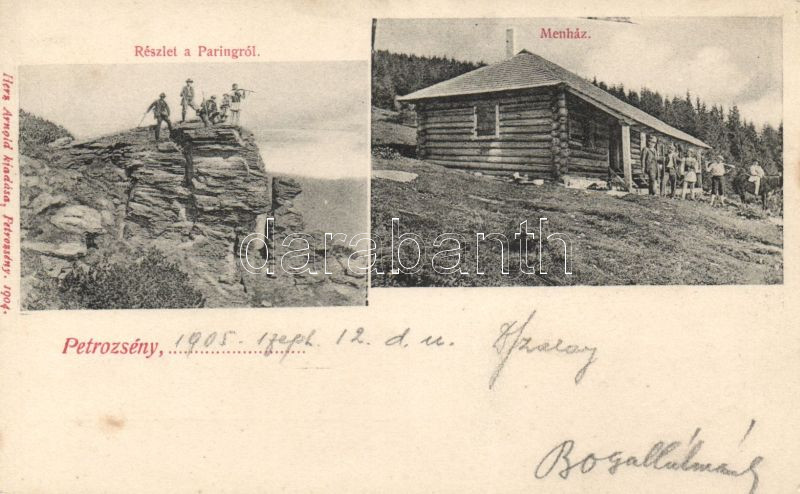 Részlet a Paringról.
Menház.
Herz Arnold kiadása, Petrozsény. 1904.
darabanth
Petrozsény, 1905. szept. 12. d. u.
Szalay